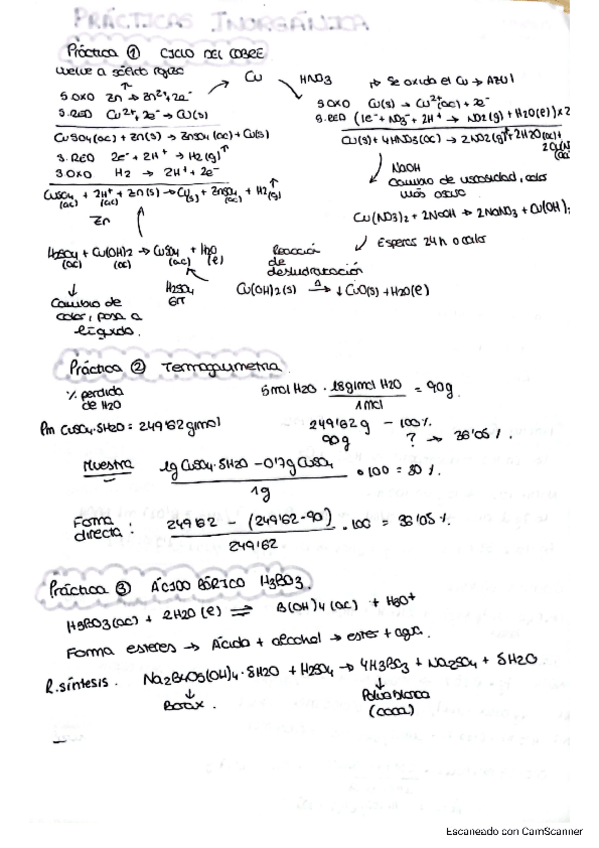 PRÁCTICAS INORGÁNICA
Práctica ① CICLO DEL COBRE
vuelve a sólido rojizo
Cu
HNO3
Se oxida el Cu → AZUL
S.OXO Zn → Zn2+ + 2e-
S.RED Cu2+ + 2e- → Cu(s)
CuSO4(ac) + Zn(s) → ZnSO4(ac) + Cu(s)
S.RED 2e- + 2H+ → H2(g)↑
S.OXO H2 → 2H+ + 2e-
CuSO4(ac) + 2H+(ac) + Zn(s) → Cu(s) + ZnSO4(ac) + H2(g)↑
Zn
S.OXO Cu(s) → Cu2+(ac) + 2e-
S.RED (1e- + NO3- + 2H+ → NO2(g) + H2O(e)) x 2
Cu(s) + 4HNO3(ac) → 2NO2(g)↑ + 2H2O(ac) +
NaOH
Cambio de viscosidad, color
más oscuro
Cu(NO3)2 + 2NaOH → 2NaNO3 + Cu(OH)2
Esperas 24h o calor
H2SO4(ac) + Cu(OH)2(ac) → CuSO4(ac) + H2O(e)
H2SO4
6M
Reacción
de
deshidratación
Cu(OH)2(s) →Δ ↓CuO(s) + H2O(e)
Cambio de
color, pasa a
líquido.
Práctica ② Termogravimetria
% perdida
de H2O
5mol H2O · 18g/mol H2O / 1mol = 90g
Pm CuSO4·5H2O = 249'62 g/mol
249'62 g – 100%
90g ? → 36'05 %.
Muestra 1g CuSO4·5H2O – 0'7g CuSO4 / 1g · 100 = 30 %.
Forma
directa: 249'62 – (249'62-90) / 249'62 · 100 = 36'05 %.
Práctica ③ ÁCIDO BÓRICO H3BO3
H3BO3(ac) + 2H2O(e) ⇌ B(OH)4(ac) + H3O+
Forma esteres → Ácido + alcohol → ester + agua.
R.síntesis. Na2B4O5(OH)4·8H2O + H2SO4 → 4H3BO3 + Na2SO4 + 5H2O
Borax.
Polvo blanco
(coca)
Escaneado con CamScanner